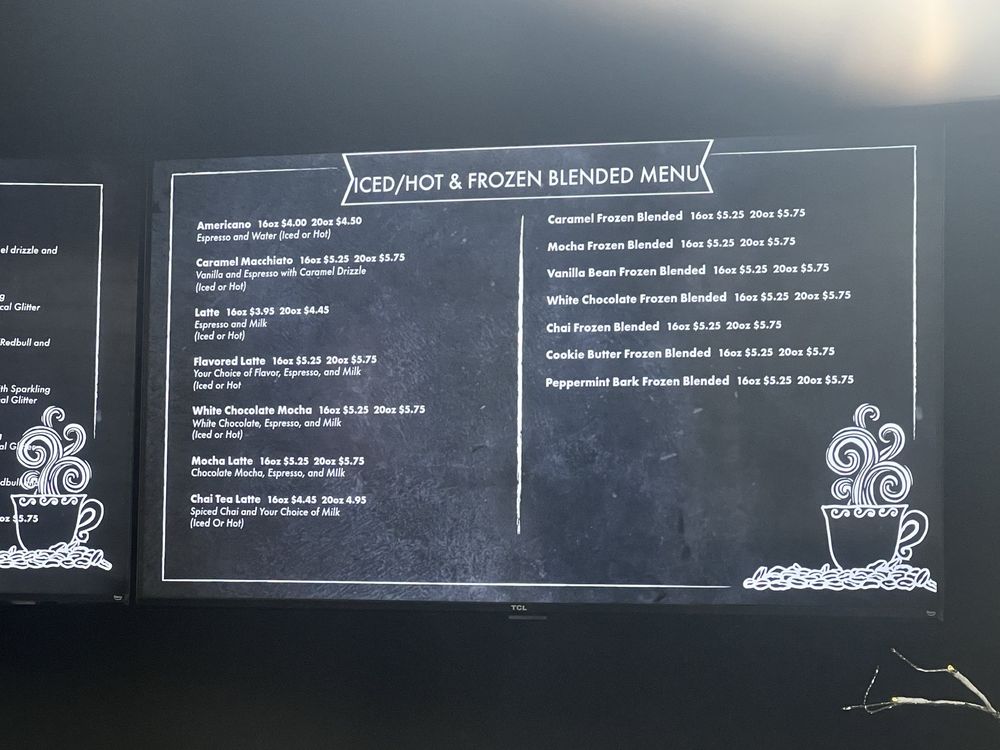 el drizzle and
g
cal Glitter
Redbull and
th Sparkling
cal Glitter
oz $5.75
ICED/HOT & FROZEN BLENDED MENU
Americano 16oz $4.00 20oz $4.50
Espresso and Water (Iced or Hot)
Caramel Macchiato 16oz $5.25 20oz $5.75
Vanilla and Espresso with Caramel Drizzle
(Iced or Hot)
Latte 16oz $3.95 20oz $4.45
Espresso and Milk
(Iced or Hot)
Flavored Latte 16oz $5.25 20oz $5.75
Your Choice of Flavor, Espresso, and Milk
(Iced or Hot
White Chocolate Mocha 16oz $5.25 20oz $5.75
White Chocolate, Espresso, and Milk
(Iced or Hot)
Mocha Latte 16oz $5.25 20oz $5.75
Chocolate Mocha, Espresso, and MIlk
Chai Tea Latte 16oz $4.45 20oz 4.95
Spiced Chai and Your Choice of Milk
(Iced Or Hot)
Caramel Frozen Blended 16oz $5.25 20oz $5.75
Mocha Frozen Blended 16oz $5.25 20oz $5.75
Vanilla Bean Frozen Blended 16oz $5.25 20oz $5.75
White Chocolate Frozen Blended 16oz $5.25 20oz $5.75
Chai Frozen Blended 16oz $5.25 20oz $5.75
Cookie Butter Frozen Blended 16oz $5.25 20oz $5.75
Peppermint Bark Frozen Blended 16oz $5.25 20oz $5.75
TCL